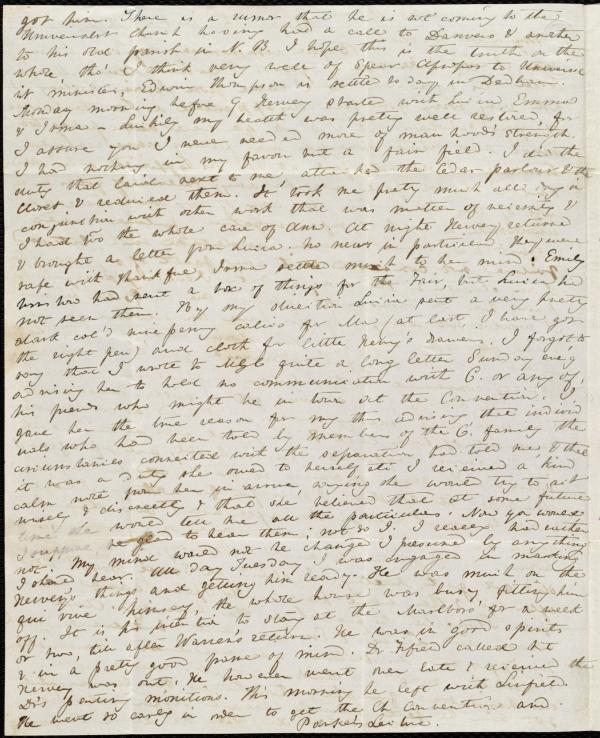 got him. There is a rumor that he is not coming to the
Universalist Church having had a call to Danvers & another
to his old parish in N. B. I hope this is the truth on the
whole, tho' I think very well of Spear. Apropos to Universal
ist ministers, Edwin Thompson is settled to day in Dedham.
Monday morning before 9 Hervey started with Louisa, Emma
& Irma – luckily my health was pretty well restored, for
I assure you I never needed more of manhood's strength
I had nothing in my favor but a fair field. I did the
duty that laid next to me, attacked the Cedar parlour & the
Closet & reduced them. It took me pretty much all day in
conjunction with other work that was matter of necessity &
I had too the whole care of Ann. At night Hervey returned
& brought a letter from Louisa. No news in particular. They were
safe with thankful, Irma settled much to her mind. Emily
had sent a box of things for the Fair, but Louisa had
not seen them. By my direction Louisa sent a very pretty
dark col'd nine penny calico for Ma (at last I have got
the right pen) and cloth for little Henry's drawers. I forgot to
say that I wrote to quite a long letter Sunday eveg
advising her to hold no communication with C. or any of
his friends who might be in town at the Convention. I
gave her the true reason for my thus advising that individ
uals who had been told by members of the C. family the
circumstances connected with the separation, had told me, & that
it was a duty she owed to herself etc I received a kind
calm note from her in answer, saying she would try to act
wisely & discreetly & that she believed that at some future
time she would tell me all the particulars. Now you would
I suppose be glad to hear them, not so I, I really had rather
not. My mind would not be changed I presume by anything
I should hear. All day Tuesday I was engaged in marking
Hervey's things and getting him ready. He was much on the
qui vive himself, the whole house was busy fitting him
off. It is his intention to stay at the Marlboro' for a week
or two, till after Warren's return. He was in good spirits
& in a pretty good frame of mind. Dr Fifield called but
Hervey was out, he however went over late & received the
Dr's parting monitions. This morning he left with
He went so early in order to get the Ch. Convention and
Parker's Lecture.